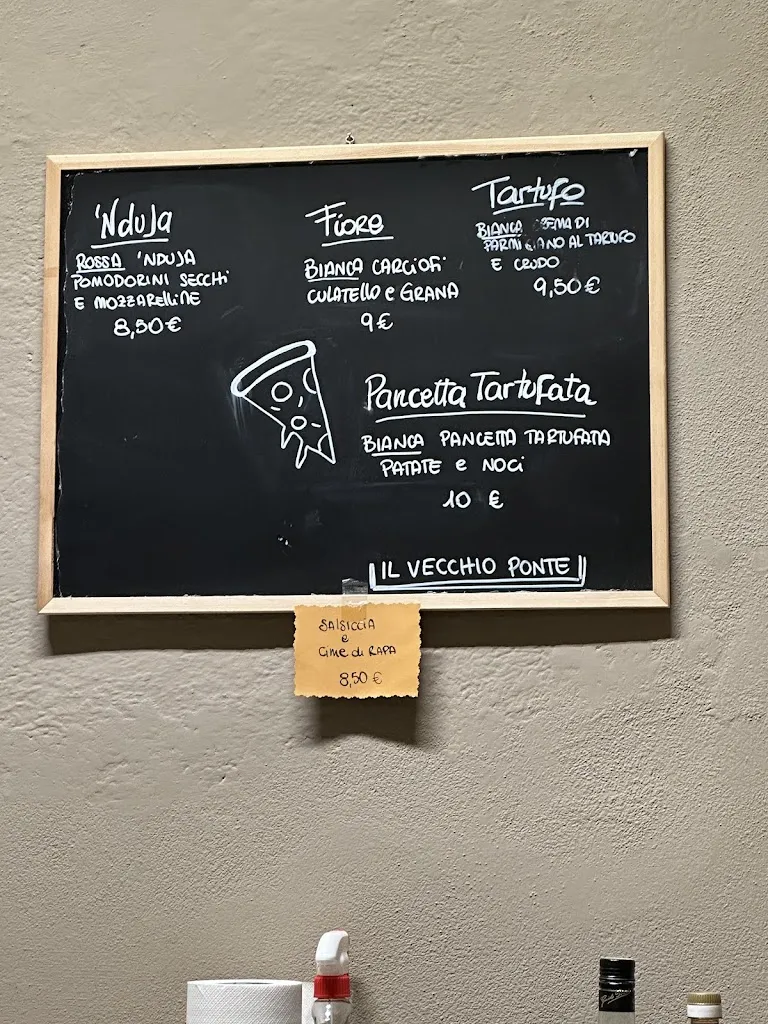 'Nduja
ROSSA 'NDUJA
POMODORINI SECCHI
E MOZZARELLINE
8,50 €
Fiore
BIANCA CARCIOFI
CULATELLO e GRANA
9 €
Tartufo
BIANCA DI
AL TARTUFO
E CRUDO
9,50 €
Pancetta Tartufata
BIANCA PANCETTA TARTUFATA
PATATE e NOCI
10 €
IL VECCHIO PONTE
SALSICCIA
e
CIME di RAPA
8,50 €